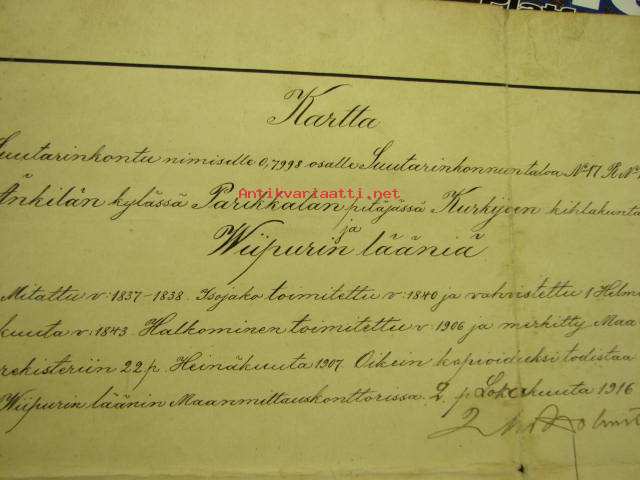 Kartta
Suutarinkontu nimiselle 0,7998 osalle Suutarinkonnun taloa No 17 R No
Änkilän kylässä Parikkalan pitäjässä Kurkijoen kihlakunta
Antikvariaatti.net
ja
Wiipurin lääniä
Mitattu v: 1837-1838. Isojako toimitettu v: 1840 ja vahvistettu 1 Helmi
kuuta v: 1843. Halkominen toimitettu v: 1906 ja merkitty Maa
rekisteriin 22 p. Heinäkuuta 1907. Oikein kopioiduksi todistaa
Wiipurin läänin Maanmittauskonttorissa. 2. p. Lokakuuta 1916